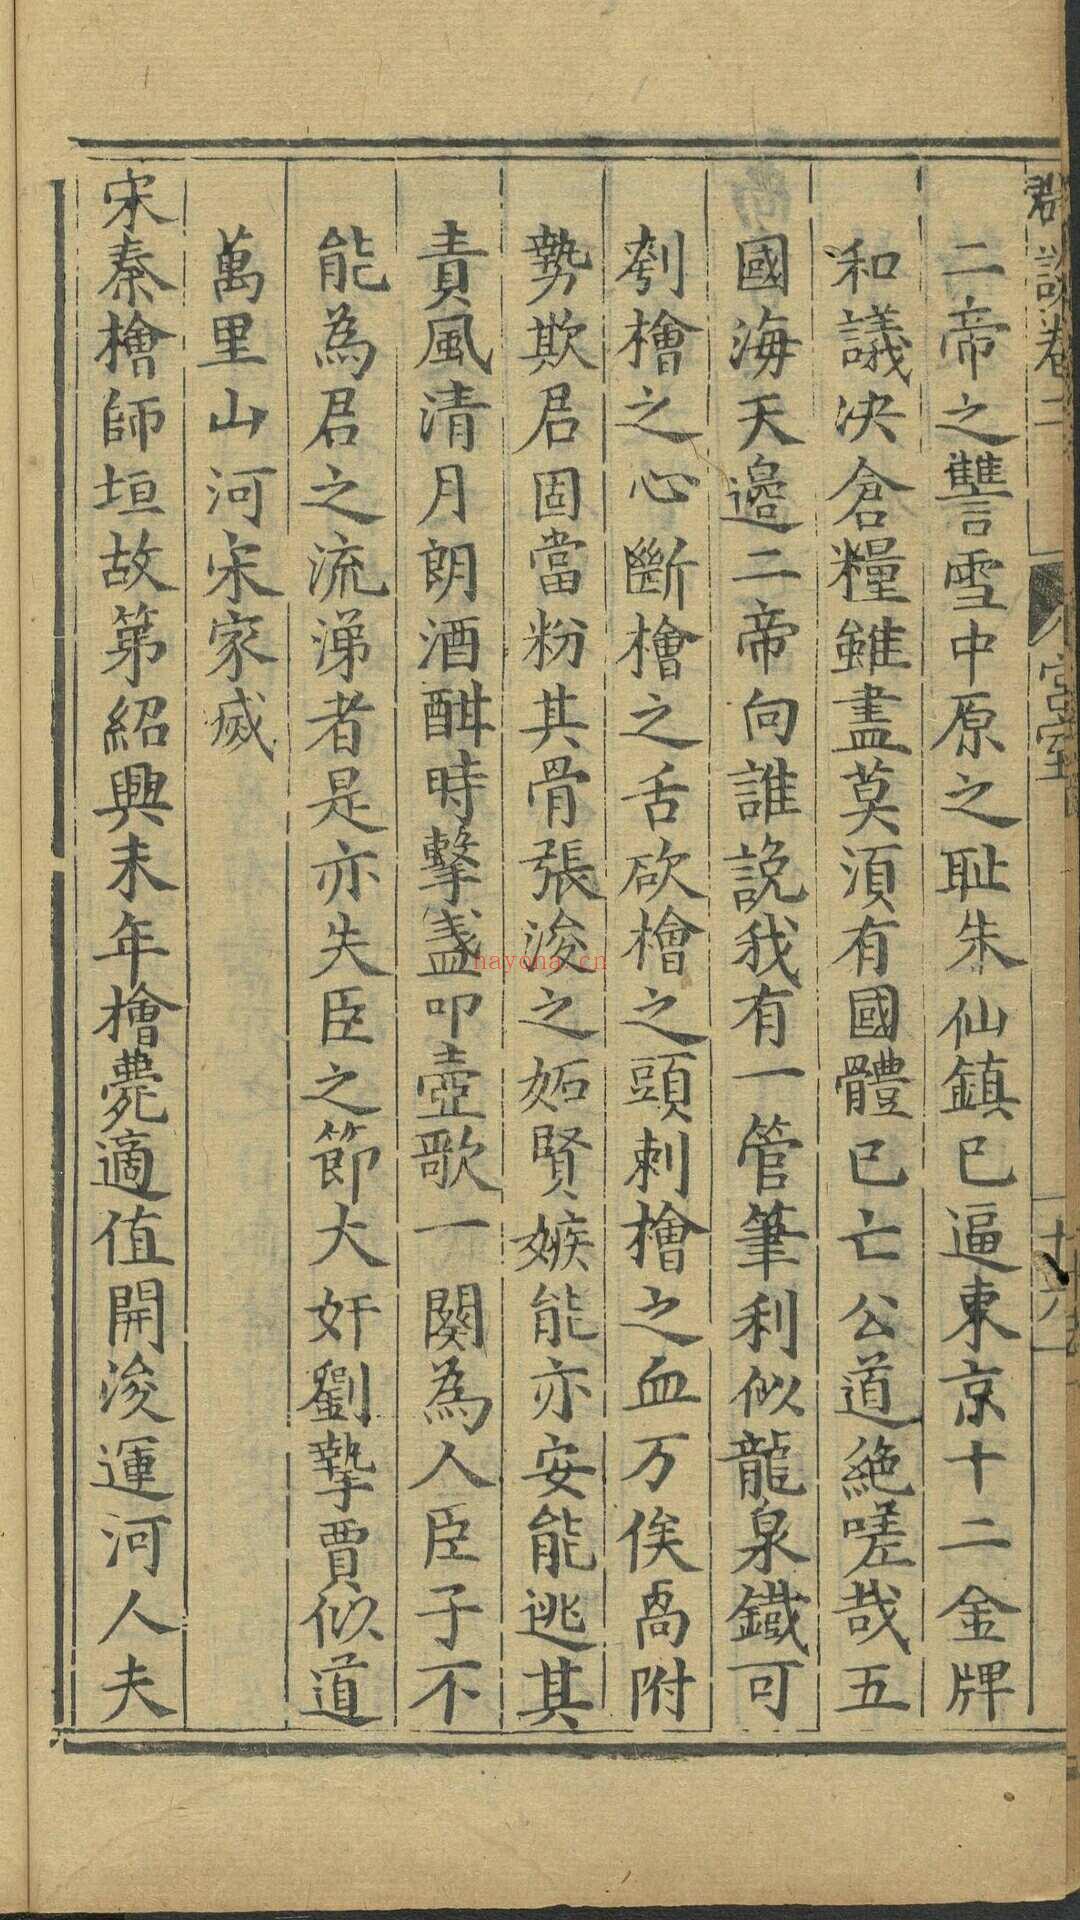 二帝之讐雪中原之耻朱仙鎮已逼東京十二金牌
和議决倉糧雖盡莫湏有國體已亡公道絶嗟哉五
國海天邉二帝向誰說我有一管筆利似龍泉鐡可
刳檜之心斷檜之舌砍檜之頭刺檜之血万俟卨附
勢欺君固當粉其骨張浚之妬賢嫉能亦安能逃其
責風清月朗酒酣時擊盞叩壺歌一闋為人臣子不
能為君之流涕者是亦失臣之節大奸劉摯賈似道
萬里山河宋家滅
宋秦檜師垣故第紹興末年檜薨適值開浚運河人夫
卷二
宫室
十六
nayona.cn